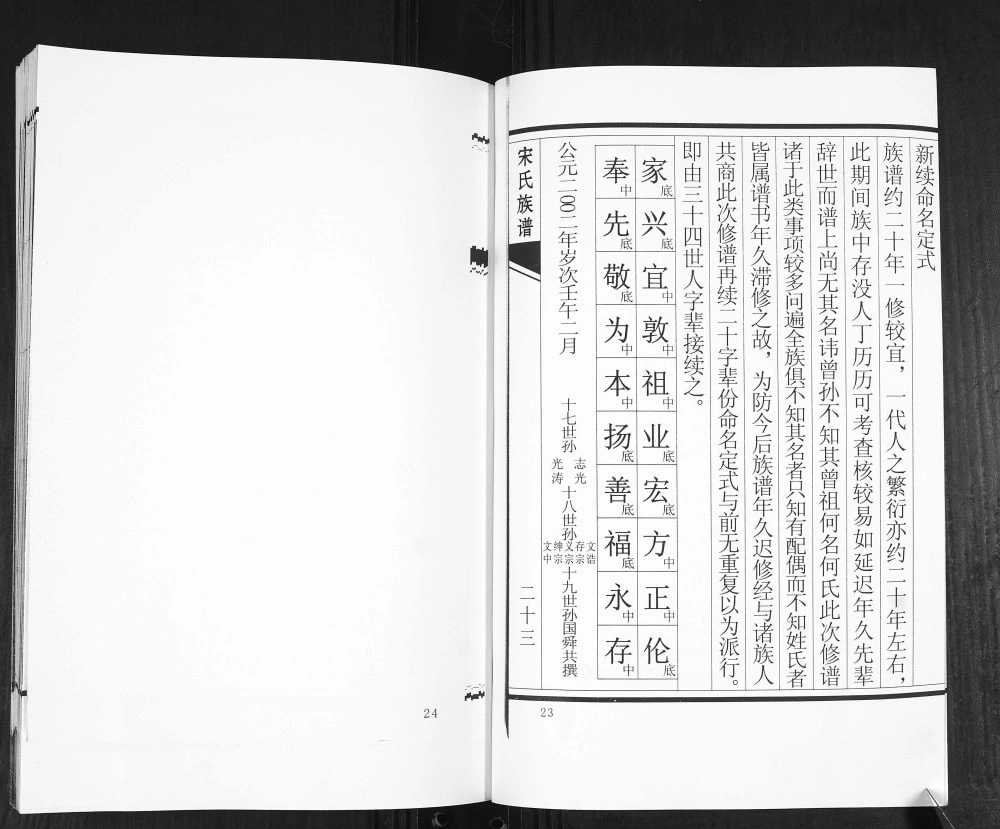 新续命名定式
族谱约二十年一修较宜，一代人之繁衍亦约二十年左右，
此期间族中存没人丁历历可考查核较易如延迟年久先辈
辞世而谱上尚无其名讳曾孙不知其曾祖何名何氏此次修谱
诸于此类事项较多问遍全族俱不知其名者只知有配偶而不知姓氏者
皆属谱书年久滞修之故，为防今后族谱年久迟修经与诸族人
共商此次修谱再续二十字辈份命名定式与前无重复以为派行。
即由三十四世人字辈接续之。
家底 兴底 宜中 敦中 祖中 业底 宏底 方中 正中 伦底
奉中 先底 敬底 为中 本中 扬底 善底 福底 永中 存中
公元二00二年岁次壬午二月 十七世孙 志光 光涛 十八世孙 文诰 存宗 义宗 绅宗 文中 十九世孙国舜共撰
宋氏族谱
二十三
23
24